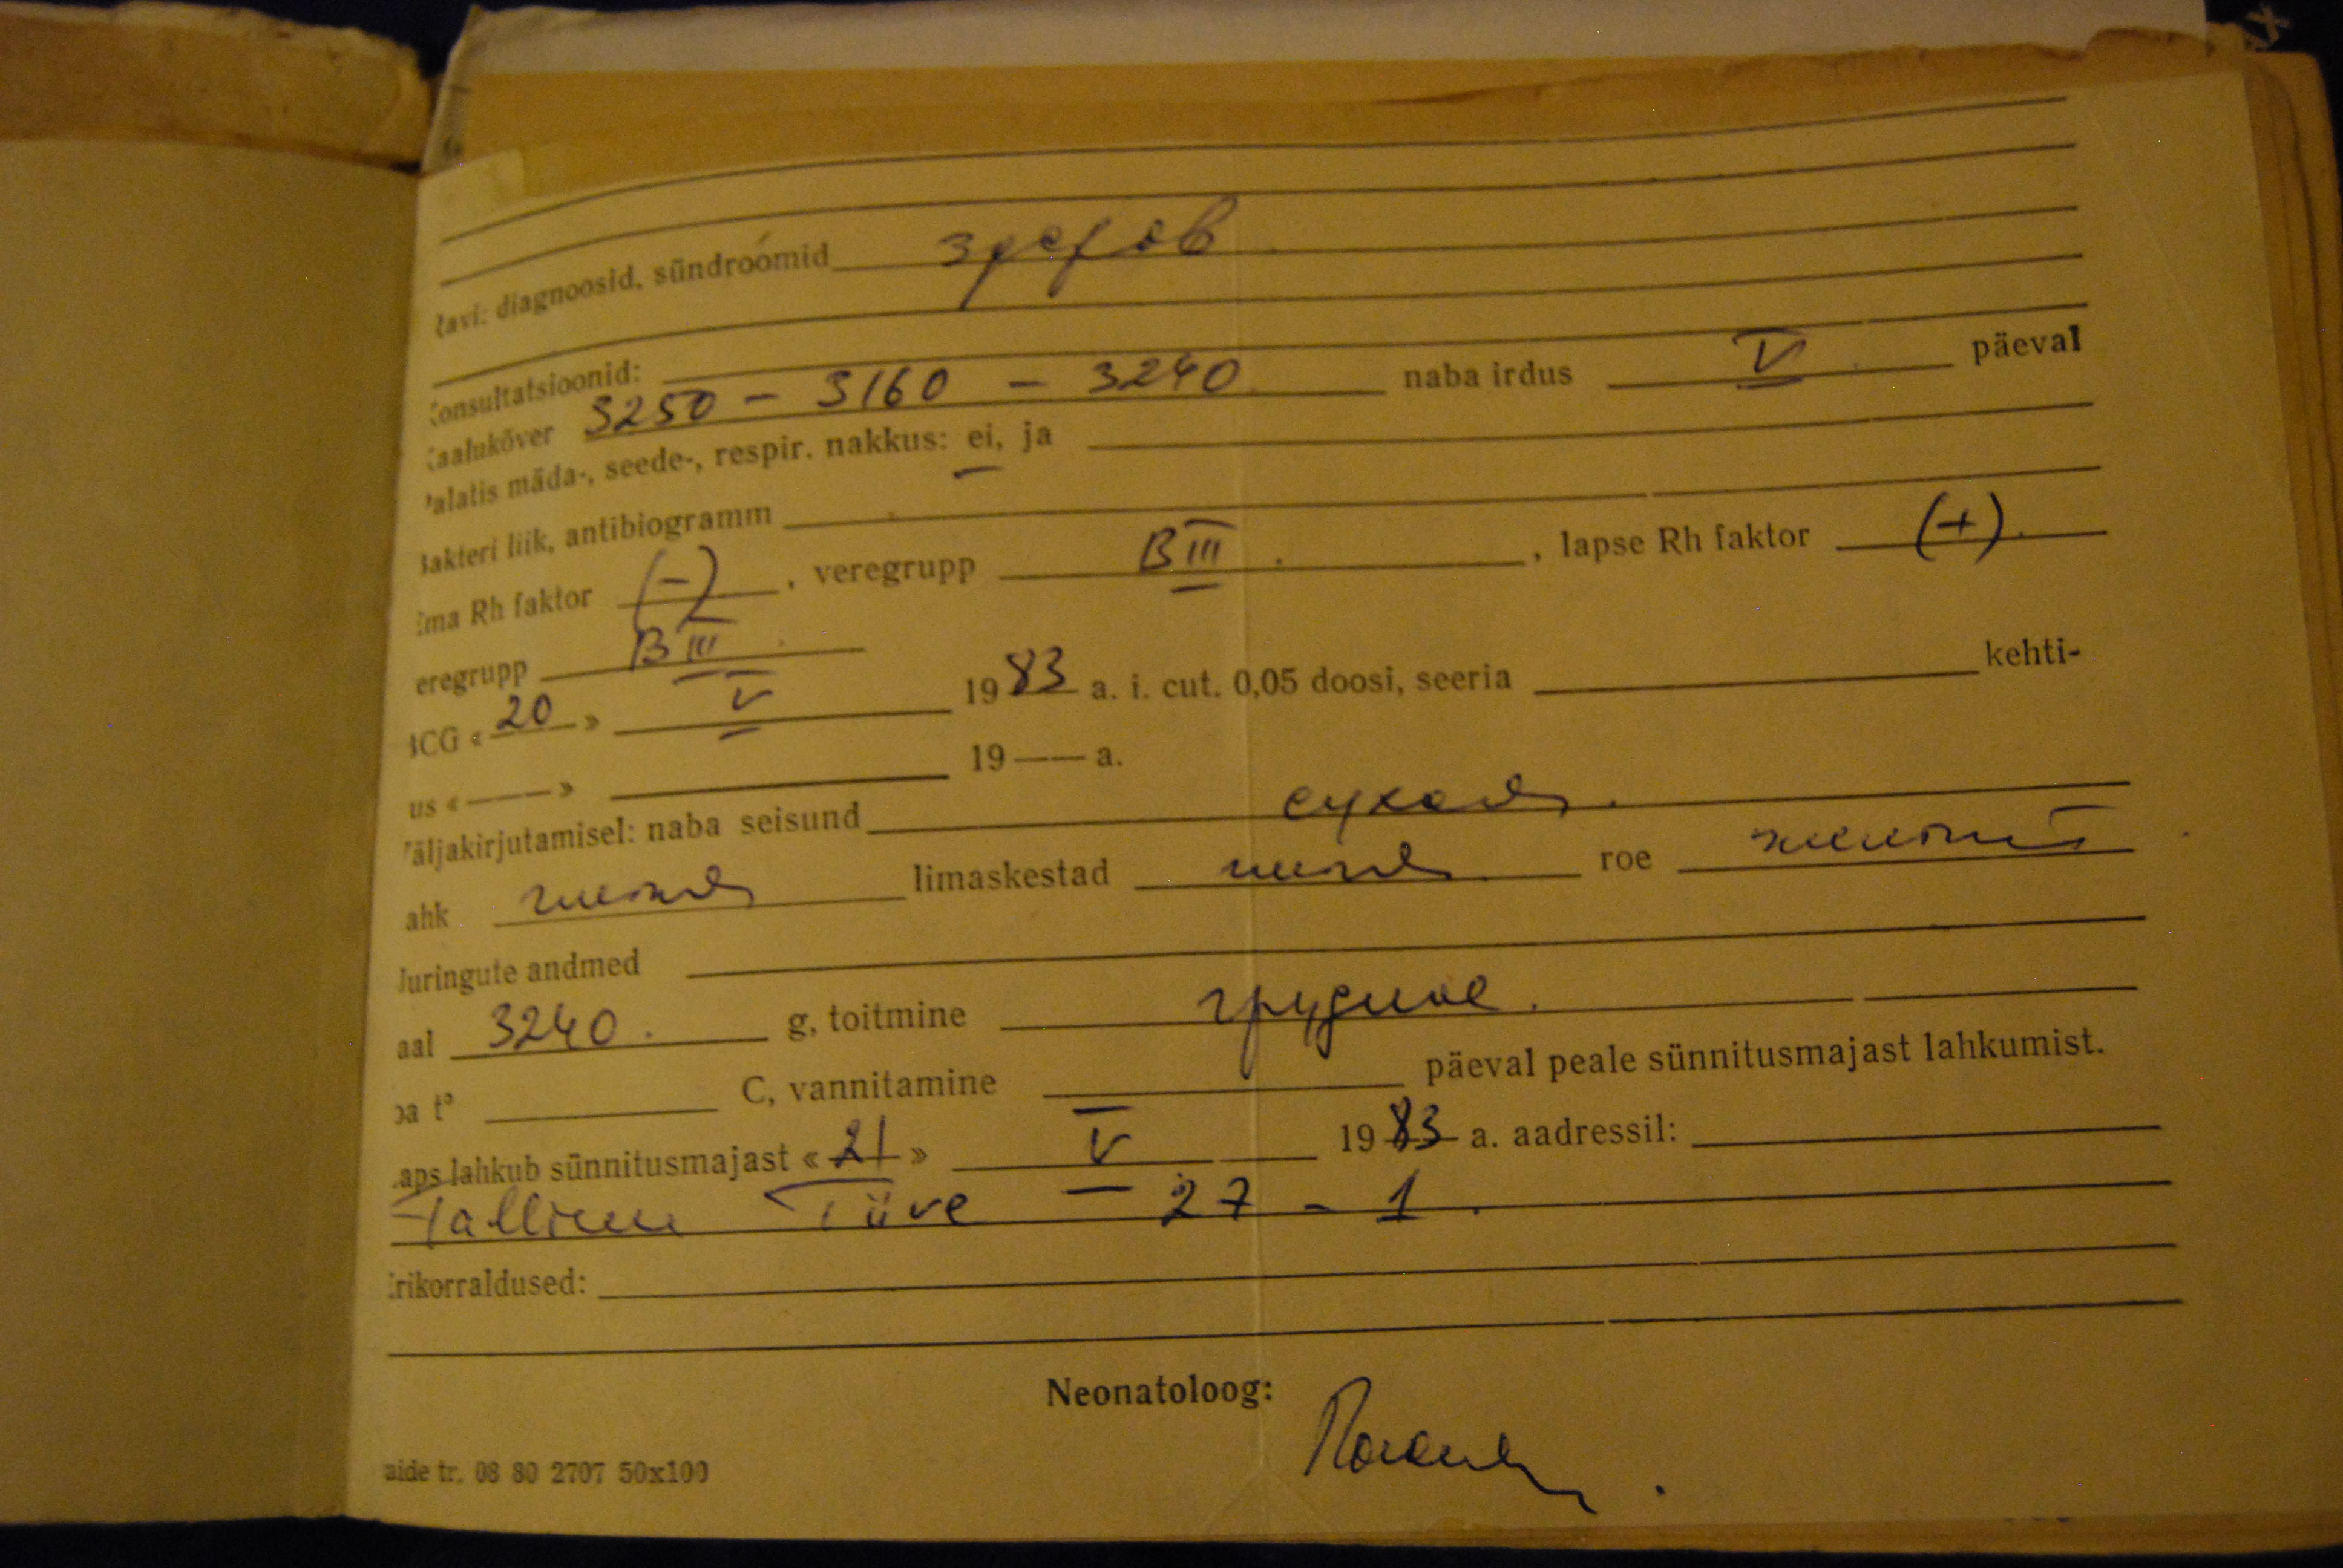 avi: diagnoosid, sündroomid здоров
onsultatsioonid:
aalukõver 3250 – 3160 – 3240 naba irdus V päeval
alatis mäda-, seede-, respir. nakkus: ei, ja
akteri liik, antibiogramm
ma Rh faktor (–), veregrupp B III, lapse Rh faktor (+)
eregrupp B III
CG « 20 » V 1983 a. i. cut. 0,05 doosi, seeria kehti-
us « —— » 19 —— a.
äljakirjutamisel: naba seisund сухая.
ahk чистая limaskestad чистые roe желтый
uringute andmed
aal 3240. g, toitmine грудное.
oa t° C, vannitamine päeval peale sünnitusmajast lahkumist.
aps lahkub sünnitusmajast « 21 » V 1983 a. aadressil:
Tallinn Tiive – 27 – 1.
rikorraldused:
Neonatoloog:
aide tr. 08 80 2707 50x100